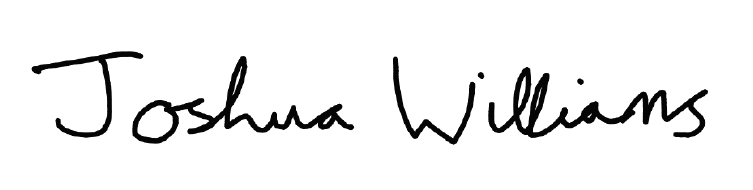 Joshua Williams